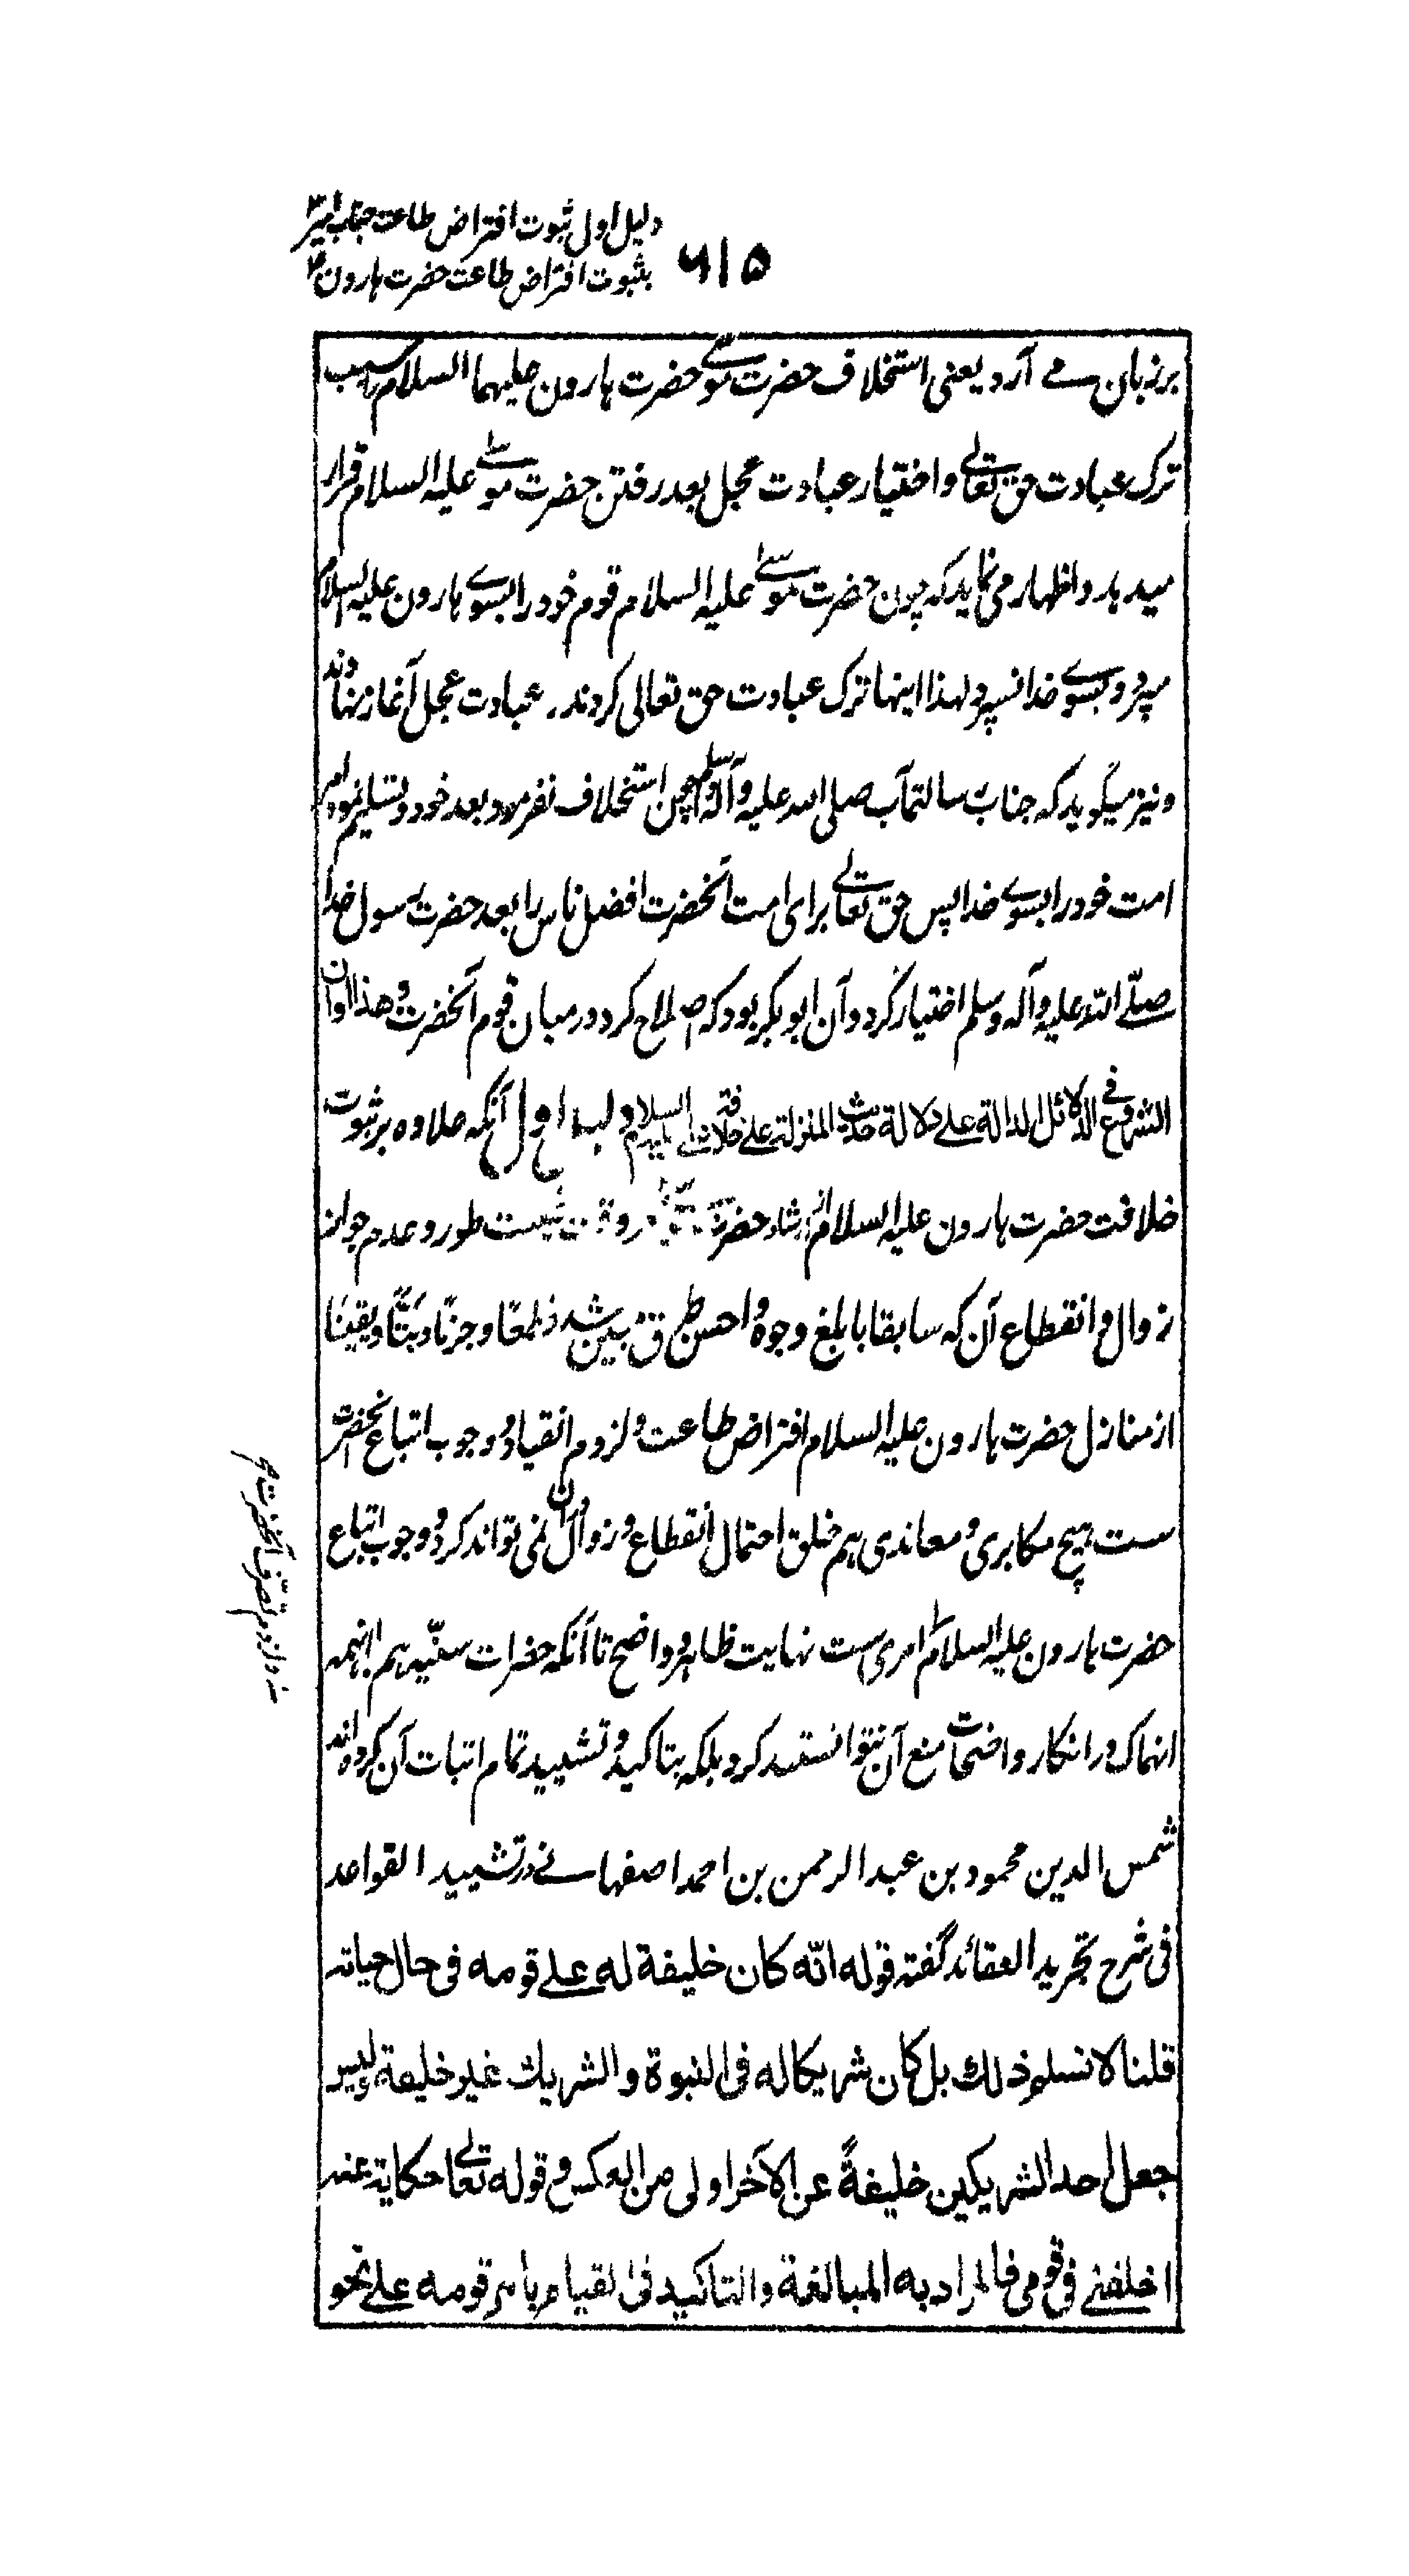 دلیل اول ثبوت افتراض طاعت جناب امیرؑ
بثبوت افتراض طاعت حضرت هارونؑ
۶۱۵
بر زبان مے آرد یعنی استخلاف حضرت موسے حضرت هارون علیهما السلام را سبب
ترک عبادت حق تعالے و اختیار عبادت عجل بعد رفتن حضرت موسے علیه السلام قرار
میدهد و اظهار می نماید که چون حضرت موسے علیه السلام قوم خود را بسوے هارون علیه السلام
سپرد و بسوے خدا نسپرد لهذا اینها ترک عبادت حق تعالی کردند و عبادت عجل آغاز نهادند
و نیز میگوید که جناب رسالتمآب صلی الله علیه و آله و سلم همچین استخلاف نفرمود بعد خود و تسلیم نمود امر
امت خود را بسوے خدا پس حق تعالے برای امت آنحضرت افضل ناس را بعد حضرت رسول خدا
صلّے الله علیه و آله وسلم اختیار کرد و آن ابو بکر بود که اصلاح کرد در میان قوم آنحضرت و هذا اوان
الشروع فی الدلائل الدالة علے دلالة حدیث المنزلة علے خلافة علی علیه السلام دلیل اول آنکه علاوه بر ثبوت
خلافت حضرت هارون علیه السلام از ارشاد حضرت موسے در وقت طور و عدم جواز
زوال و انقطاع آن که سابقا بابلغ وجوه و احسن طرق مبین شد قطعًا و جزمًا و بتًّا و یقینًا
از منازل حضرت هارون علیه السلام افتراض طاعت و لزوم انقیاد و وجوب اتباع آنحضرت
ست هیچ مکابری و معاندی هم خلق احتمال انقطاع و زوال آن نمی تواند کرد و وجوب اتباع
حضرت هارون علیه السلام امری ست نهایت ظاهر و واضح تا آنکه حضرات سنّیه هم با اینهمه
انهماک در انکار واضحات منع آن نتوانستند کرد بلکه بتاکید و تشیید تمام اثبات آن کرده اند
شمس الدین محمود بن عبد الرحمن بن احمد اصفهانے در تشیید القواعد
فی شرح تجرید العقائد گفته قوله انّه کان خلیفة له علے قومه فی حال حیاته
قلنا لا نسلم ذلك بل کان شریکا له فی النبوة و الشریك غیر خلیفة و لیس
جعل احد الشریکین خلیفةً عن الآخر اولی من العکس و قوله تعالے حکایة عنه
اخلفنے فی قومی فالمراد به المبالغة و التاکید فی القیام بامر قومه علے نحو